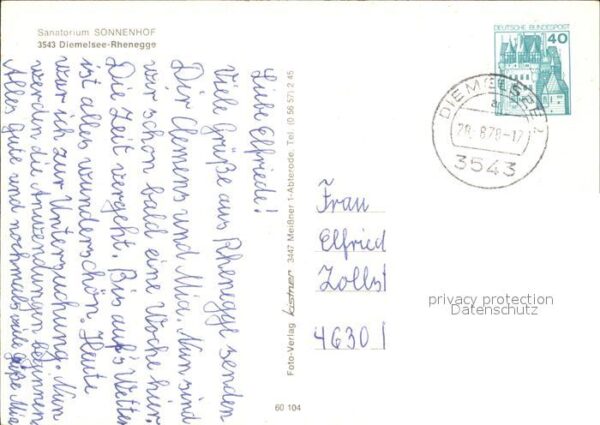 Sanatorium SONNENHOF
3543 Diemelsee-Rhenegge
Liebe Elfriede!
Viele Grüße aus Rhenegge senden
Dir Clemens und Mia. Nun sind
wir schon bald eine Woche hier.
Die Zeit vergeht. Bis auf's Wetter
ist alles wunderschön. Heute
war ich zur Untersuchung. Nun
werden die Anwendungen beginnen.
Alles Gute und nochmals viele Grüße Mia
Foto-Verlag kästner 3447 Meißner 1-Abterode, Tel. (0 56 57) 2 45
60 104
DEUTSCHE BUNDESPOST
40
DIEMELSEE 1
a
28.-8.78-17
3543
Frau
Elfried
Zollst
4630 1
privacy protection
Datenschutz